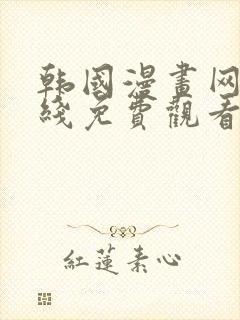 韩國漫畫网
綫免費觀看
紅蓮素心